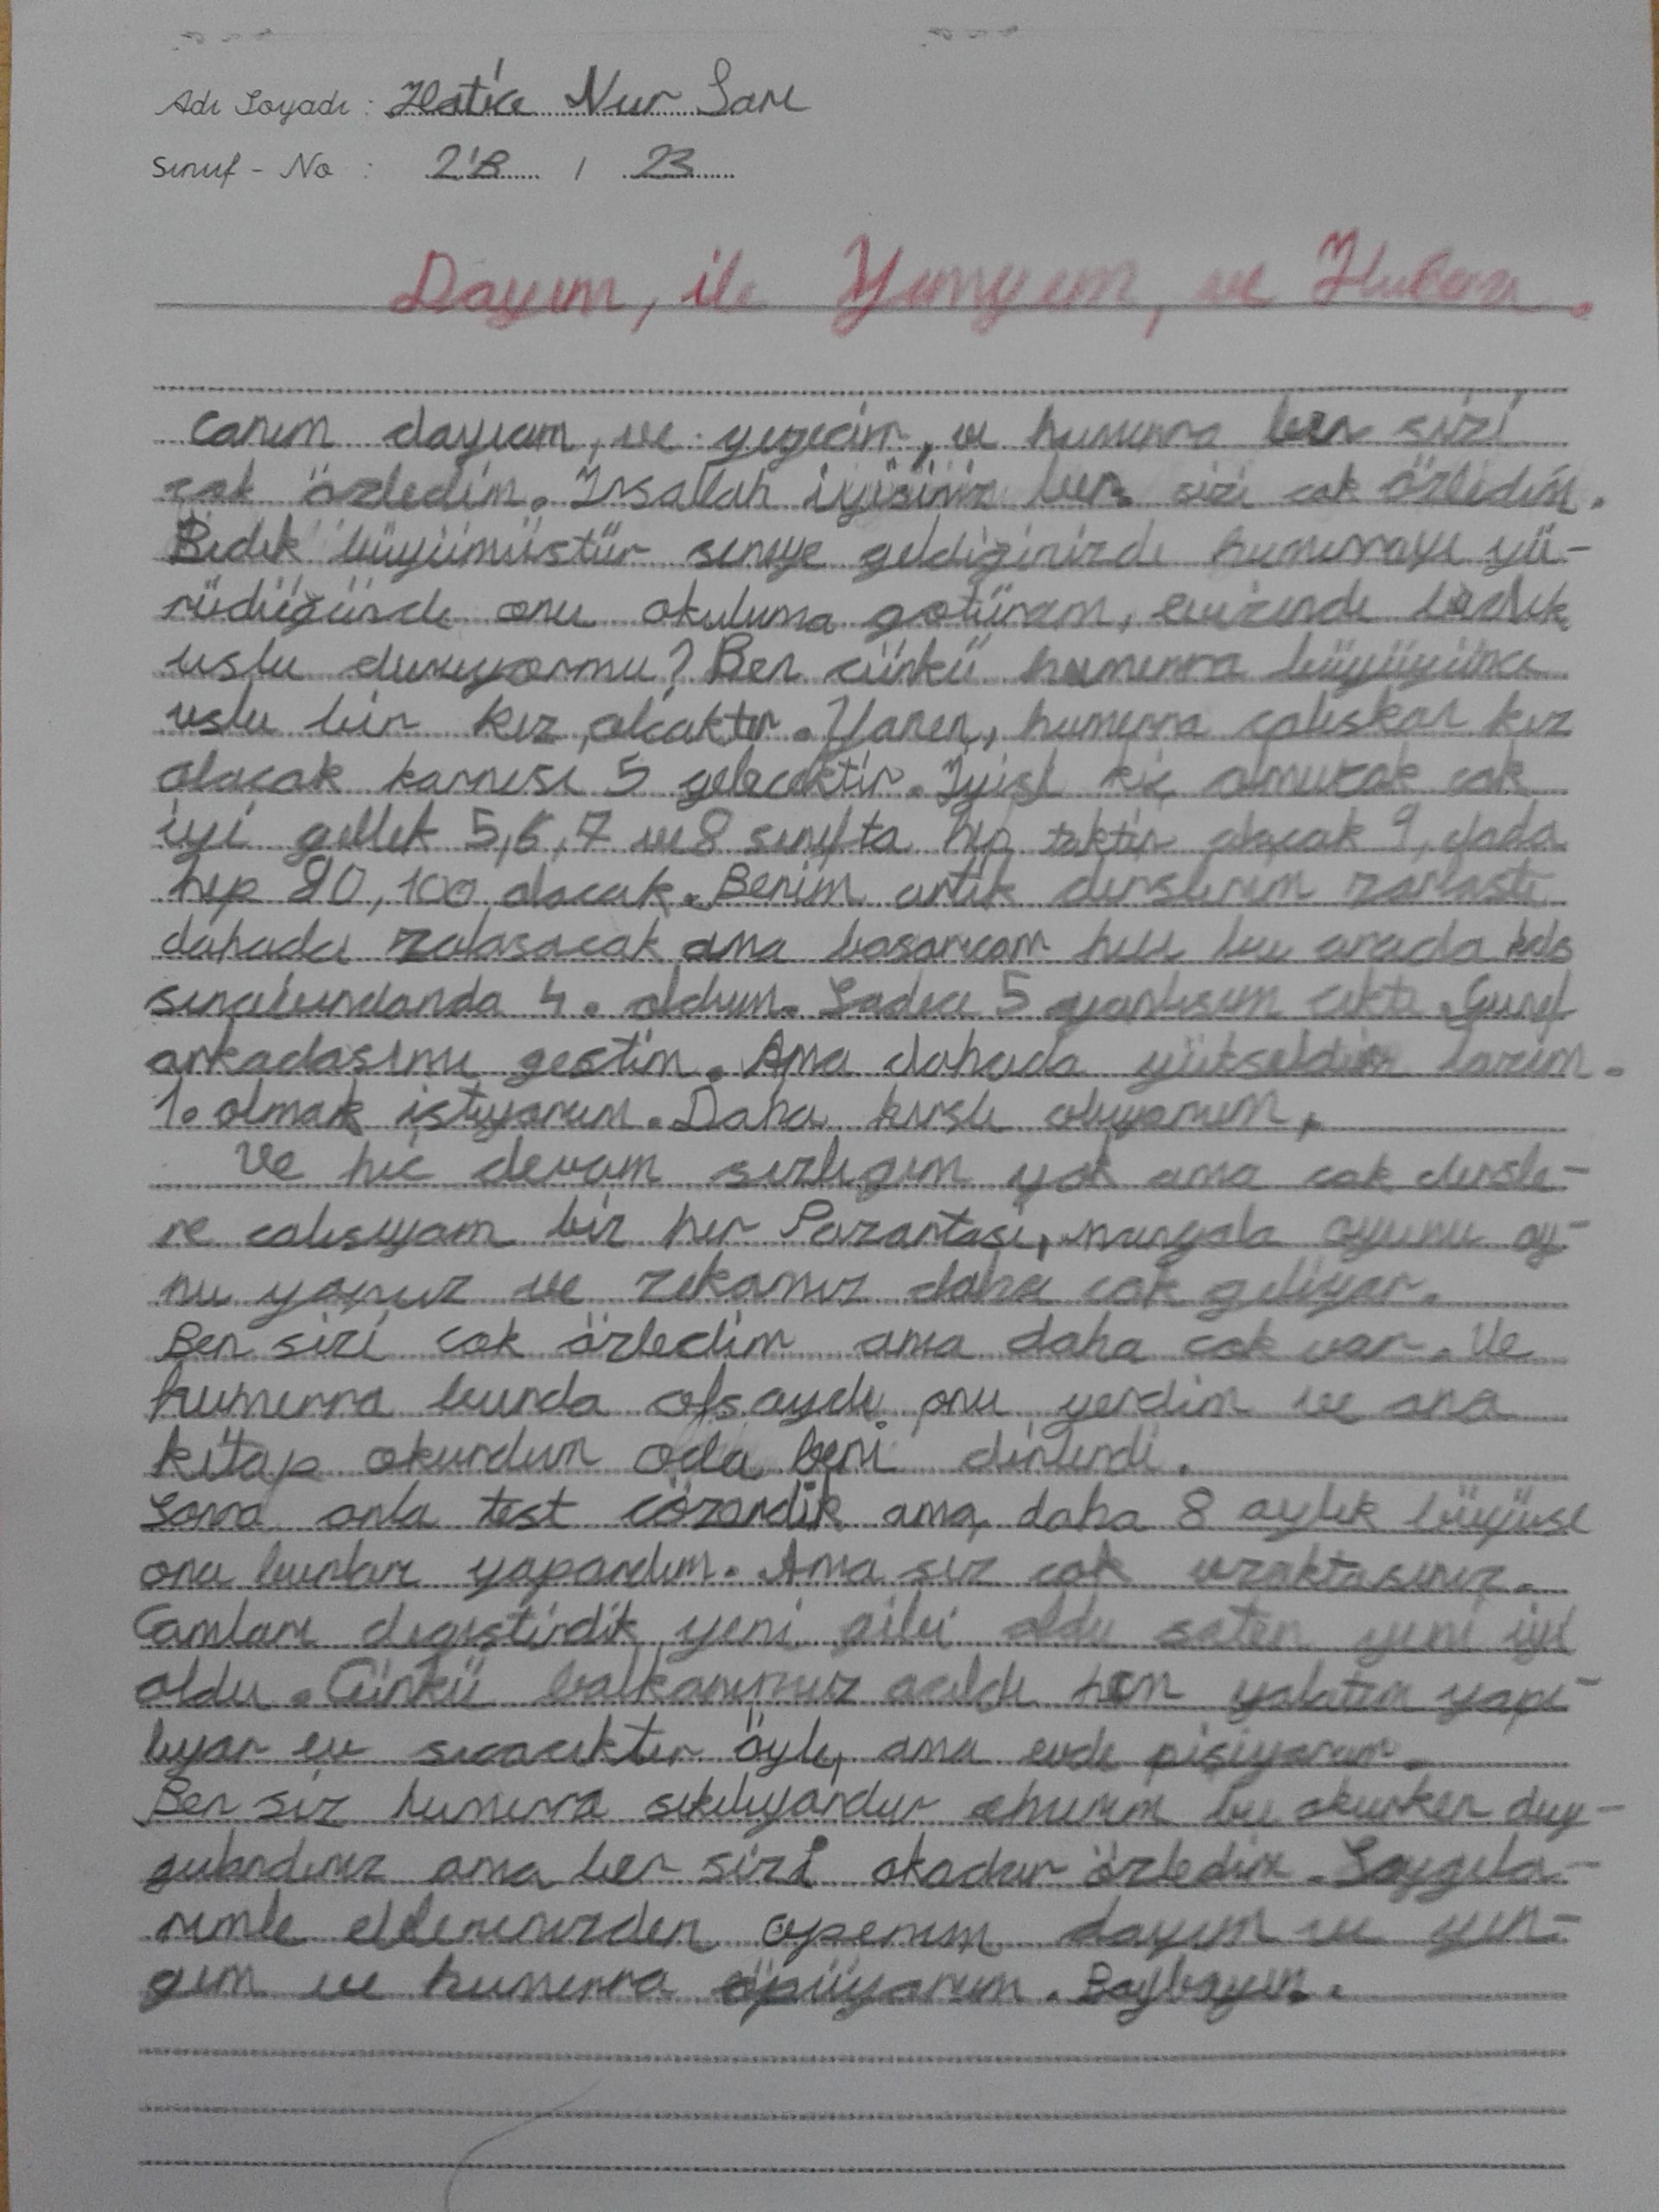 Adı Soyadı : Hatice Nur Sarı
Sınıf - No : 2'B / 23
Dayım, ile Yengem, ve
Canım dayıcım, ve ve humeyra ben sizi
cok özledim. İnsallah iyisiniz ben sizi cok özledim.
büyümüstür seneye geldiğinizde humeyrayı yü-
rüdüğünde onu okuluma götürem, evizende
uslu duruyormu? Ben cünkü humeyra büyüyünce
uslu bir kız olcaktır. humeyra calıskan kız
olacak karnesi 5 gelecektir. cok
iyi 5,6,7 ve 8 sınıfta hep taktir alacak 9, yada
hep 90, 100 alacak. Benim artık derslerim zorlastı
dahada zolasacak ama basarıcam bu arada
4. oldum. Sadece 5 yanlısım cıktı. Sınıf
arkadasımı gestim. Ama dahada lazım.
1. olmak istiyorum. Daha oluyorum,
Ve hic devam sızlıgım yok ama cok dersle-
re calısıyom biz her Pazartası, mangala oyunu oy-
nu yoruz ve zekamız daha cok geliyor.
Ben sizi cok özledim ama daha cok var. Ve
humeyra burda olsaydı onu yerdim ve ona
kitap okurdum oda beni dinlerdi.
Sonra onla test cözerdik ama daha 8 aylık büyüse
ona bunları yapardım. Ama siz cok uzaktasınız.
Camları degiştirdik yeni gibi oldu yeni iyi
oldu. Cünkü balkonumuz acıldı hem yalatım yapı-
lıyor ev sıcacıktır öyle, ama evde pişiyorum.
Ben siz humeyra sıkılıyordur bu okurken duy-
gulandınız ama ben sizi okadar özledim. Saygıla-
rımla ellerinizden öperim dayım ve yen-
gem ve humeyra öpüyorum. Baybayın.